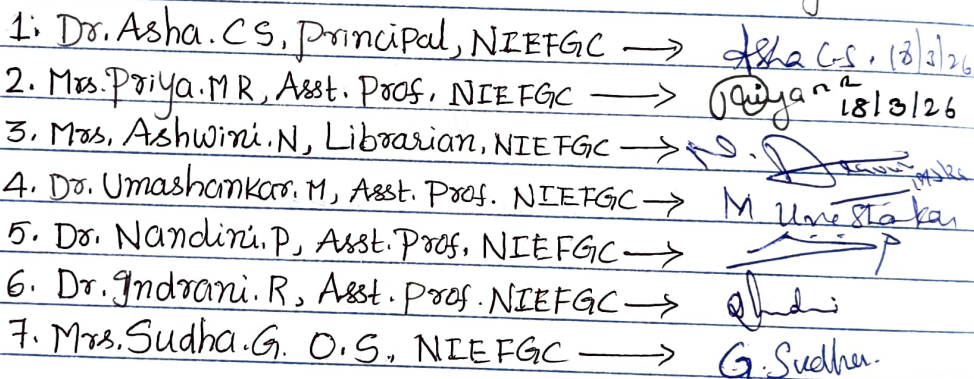 1. Dr. Asha. C S, Principal, NIEFGC → Asha C.S. 18/3/26
2. Mrs. Priya. M R, Asst. Prof. NIEFGC → Priya 18/3/26
3. Mrs. Ashwini. N, Librarian, NIEFGC → N.
4. Dr. Umashankar. M, Asst. Prof. NIEFGC → M
5. Dr. Nandini. P, Asst. Prof, NIEFGC →
6. Dr. Indrani. R, Asst. Prof. NIEFGC →
7. Mrs. Sudha. G. O.S, NIEFGC → G. Sudha.